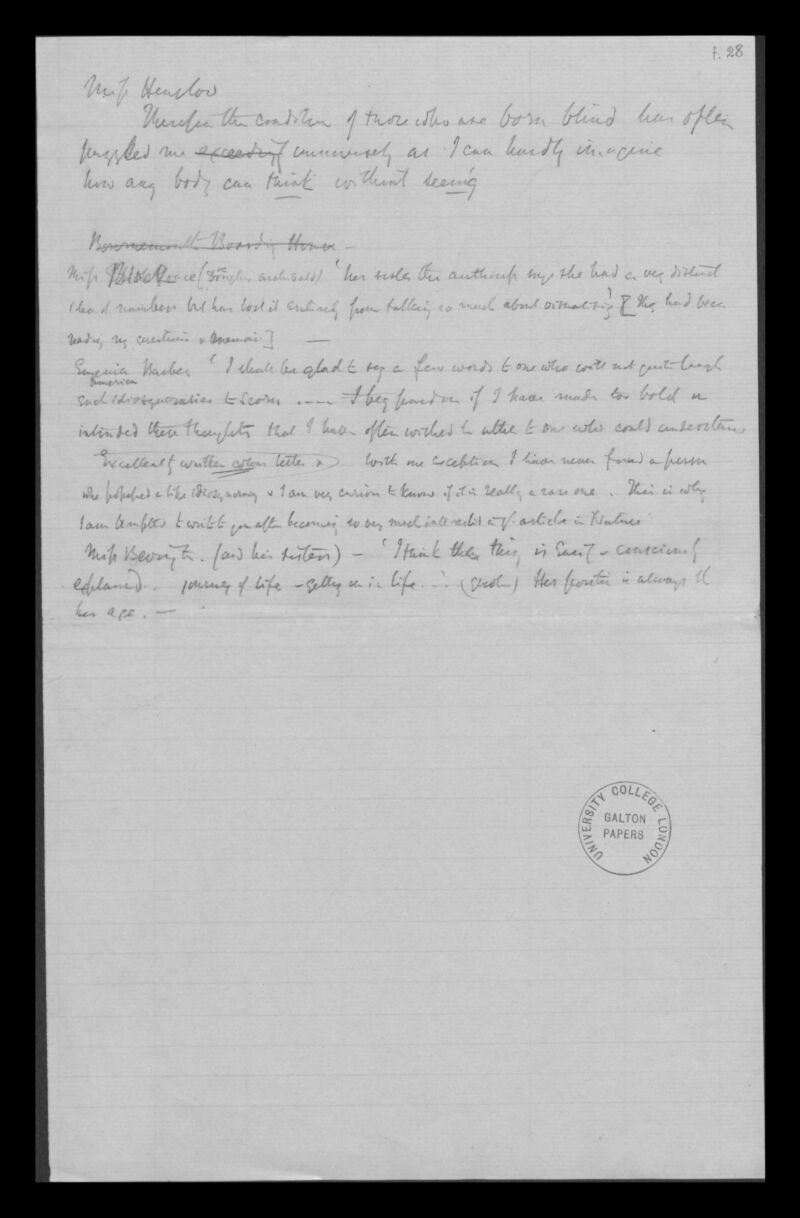 f. 28
Miss Henslow
the condition of those who are born blind has often
puzzled me exceedingly immensely as I can hardly imagine
how any body can think without seeing
Bournemouth Boarding House
Miss Block her sister the authoress says she had a very distinct
idea of numbers but has lost it entirely from talking so much about visualising' [They had been
reading my questions & memoir]
Eugenia 'I shall be glad to say a few words to one who will not quite laugh
America
such idiosyncrasies to scorn ---- I beg pardon if I have made too bold or
intruded these thoughts that I have often wished to utter to one who could understand
Excellently written letter with one exception I have never found a person
who possessed a like idiosyncrasy & I am very curious to know if it is really a rare one. This is why
I am tempted to write to you after becoming so very much interested in yr article in Nature
Miss (and her sisters) - 'I think this
explained. journey of life - getting on in life Her position is always
her age. —
UNIVERSITY COLLEGE LONDON
GALTON
PAPERS